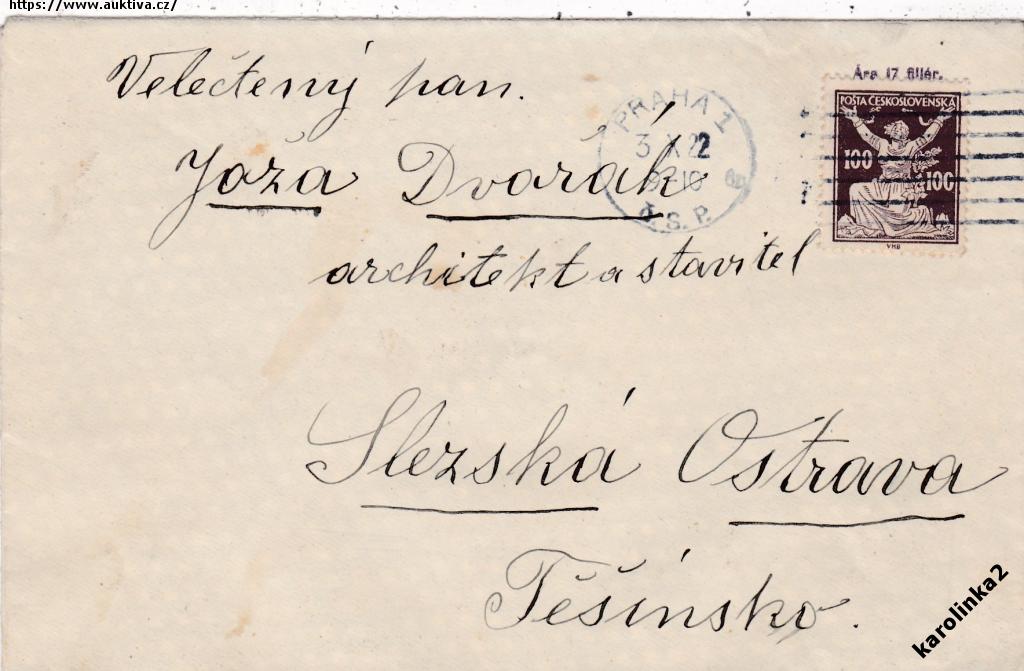 https://www.auktiva.cz/
Velečtený pan.
Ára 17 fillér.
POŠTA ČESKOSLOVENSKÁ
100
100
VHB
PRAHA 1
3 X 22
9-10
Č.S.P.
Joža Dvořák
architekt a stavitel
Slezská Ostrava
Těšínsko.
karolinka2